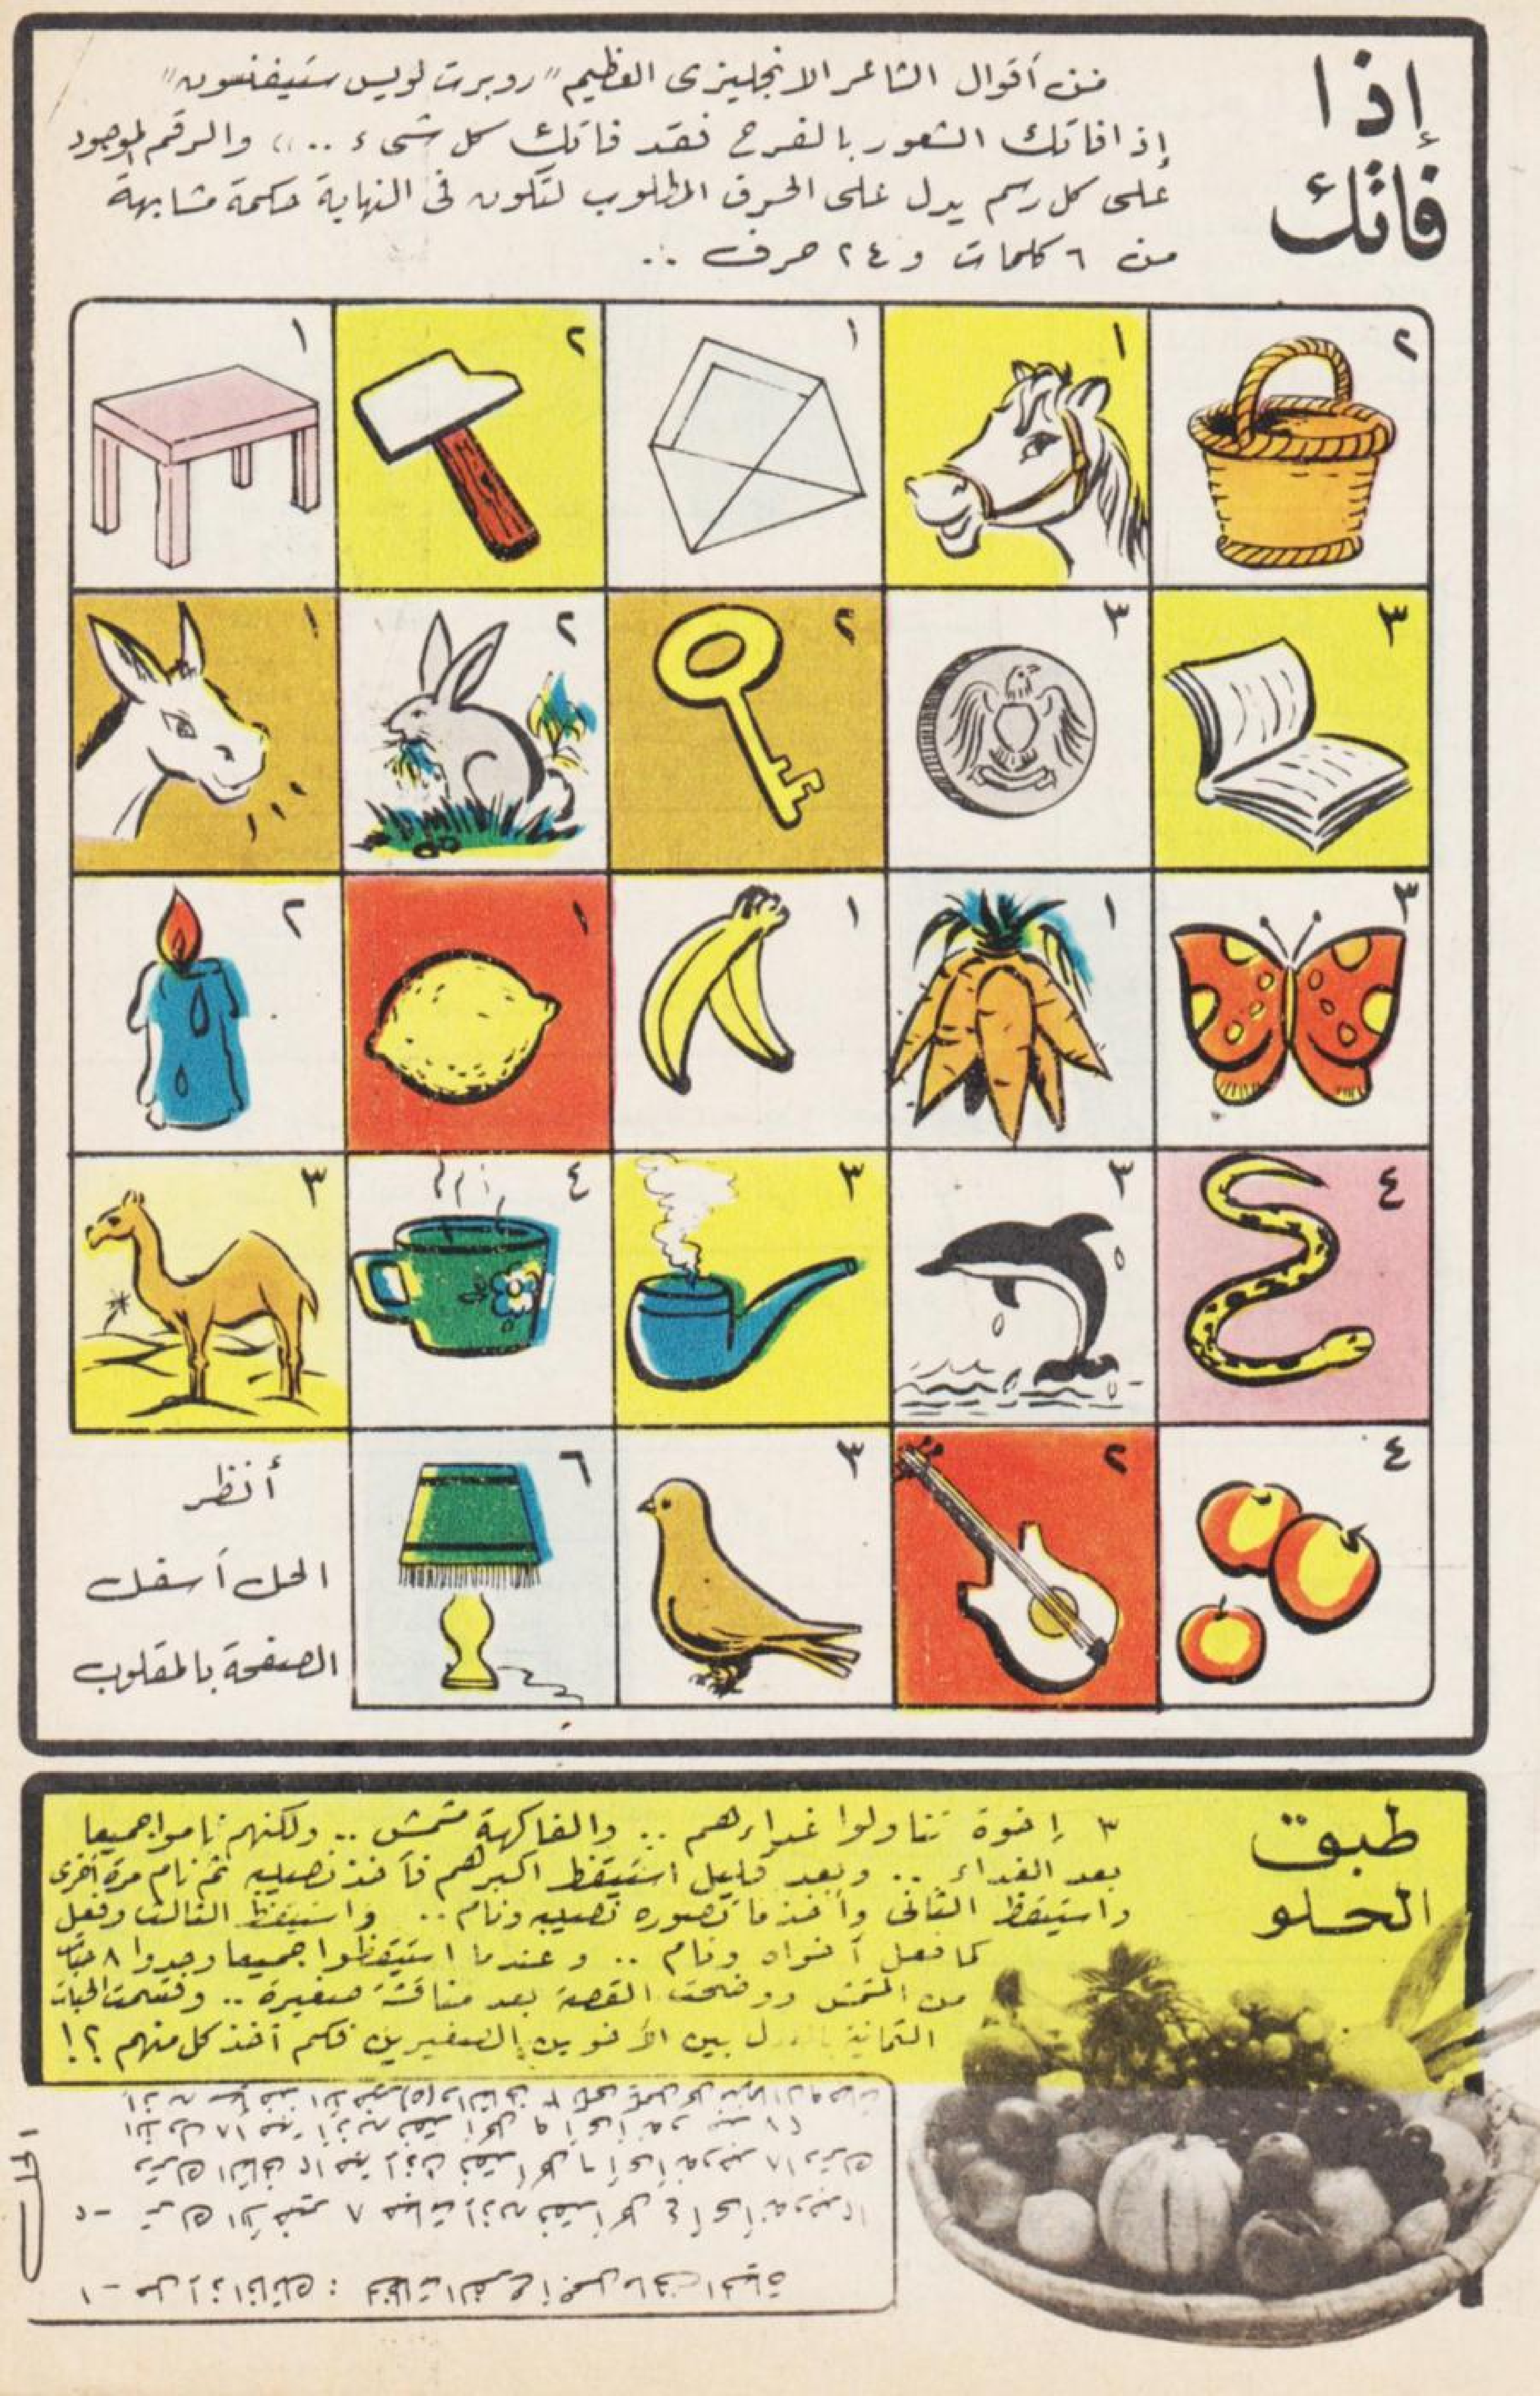 إذا
فاتك
من أقوال الشاعر الانجليزى العظيم "روبرت لويس ستيفنسون"
إذا فاتك الشعور بالفرح فقد فاتك كل شىء .. " والرقم الموجود
على كل رسم يدل على الحرف المطلوب لتكون فى النهاية حكمة مشابهة
من ٦ كلمات و ٢٤ حرف ..
٢ ١ ١ ٢ ١
٣ ٣ ٢ ٢ ١
٣ ١ ١ ١ ٢
٤ ٣ ٣ ٤ ٣
٤ ٢ ٣ ٦
أنظر
الحل أسفل
الصفحة بالمقلوب
طبق
الحلو
٣ إخوة تناولوا غداءهم .. والفاكهة مشمش .. ولكنهم ناموا جميعا
بعد الغداء .. وبعد قليل استيقظ اكبرهم فأخذ نصيبه ثم نام مرة أخرى
واستيقظ الثانى وأخذ ما تصوره نصيبه ونام .. واستيقظ الثالث وفعل
كما فعل أخواه ونام .. وعندما استيقظوا جميعا وجدوا ٨ حبات
من المشمش ووضحت القصة بعد مناقشة صغيرة .. وقسمت الحبات
الثمانية بالعدل بين الأخوين الصغيرين فكم أخذ كل منهم ؟!
١ - حل إذا فاتك : لحظات الفرح أجمل ما فى الحياة
٢ - ترك الأخير ٨ حبات إذن فقد أكل ٤ أى أنه وجد ١٢